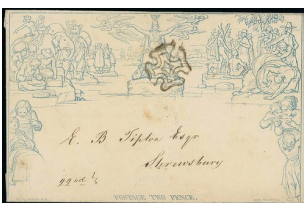 E. B. Tipton Esqr
Shrewsbury
POSTAGE TWO PENCE.